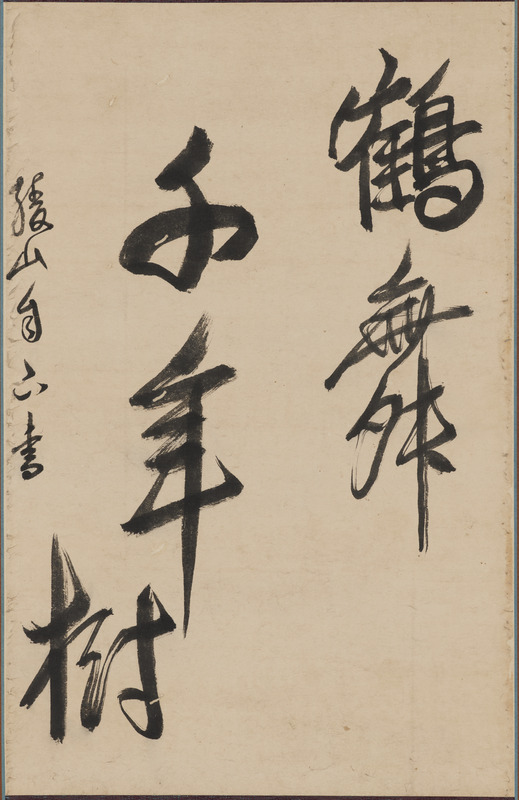 鶴舞
千年樹
山自書